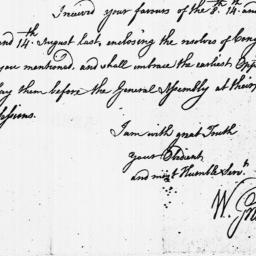 I received your favours of the 8th. 14. and
and 14th August last, enclosing the resolves of Cong
you mentioned, and shall embrace the earliest Opp
lay them before the General Assembly at their
Sessions.
I am with great Truth
your Obedient
and most Humble Servt.
W.